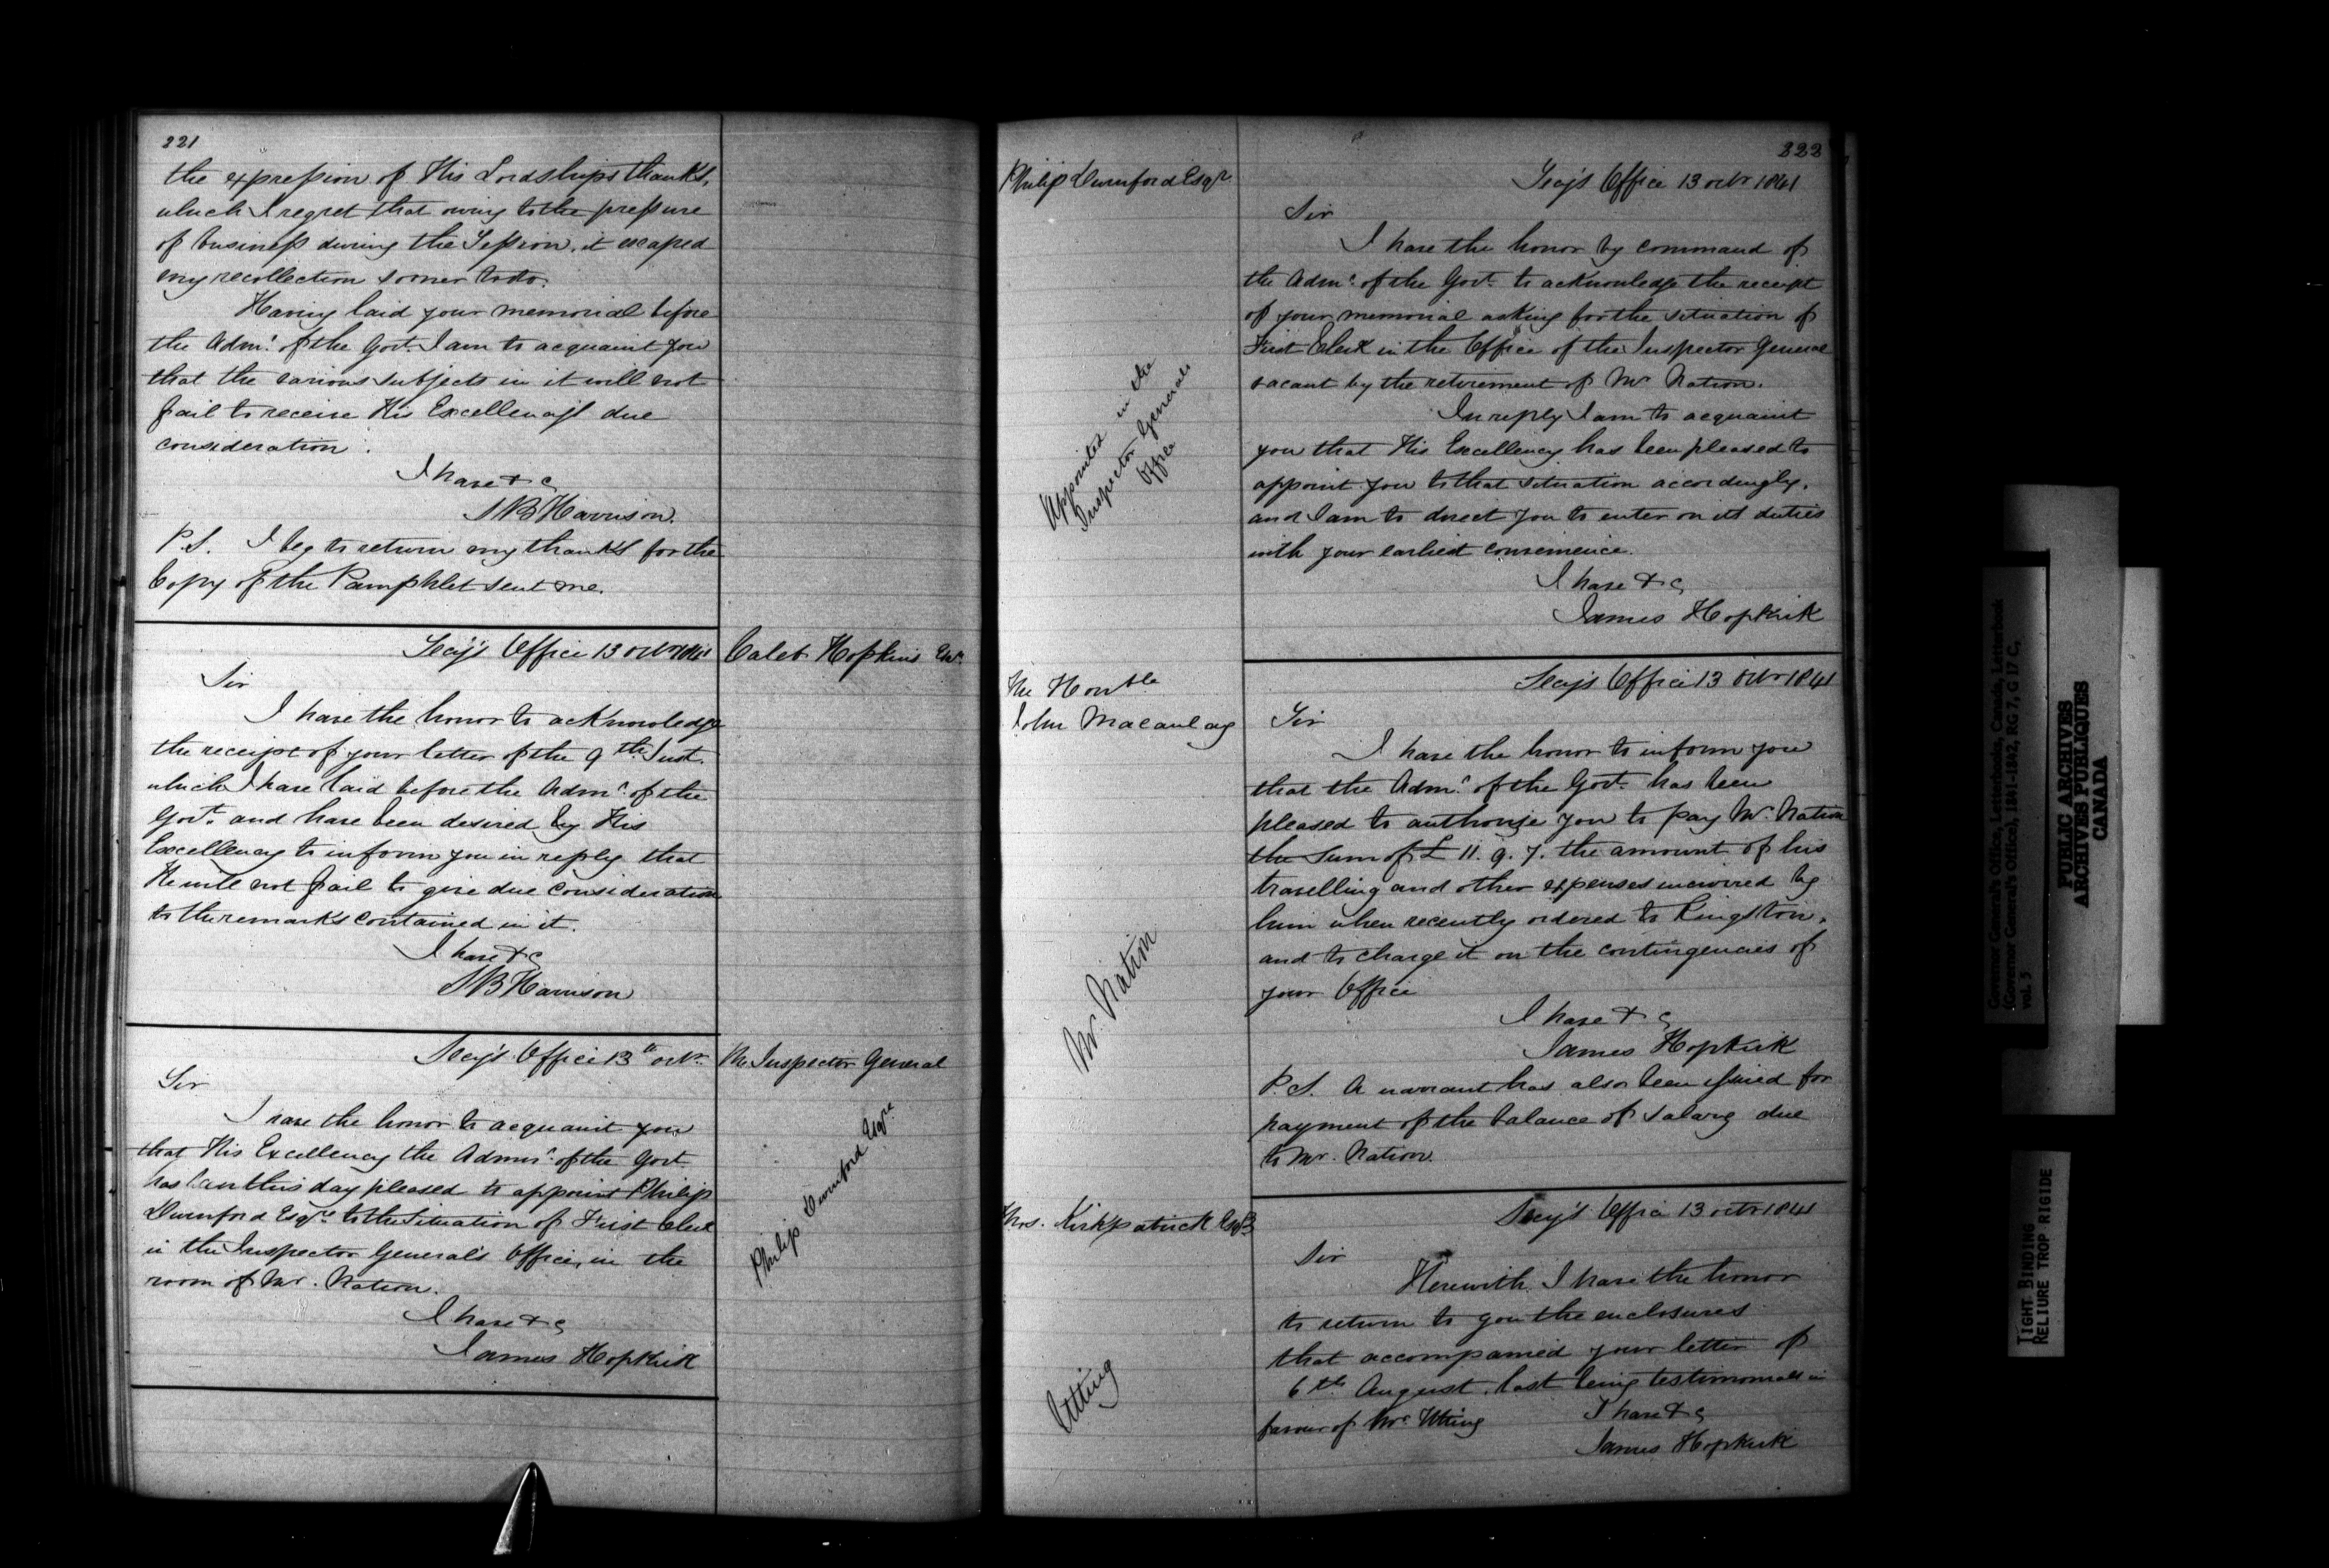 221
the expression of His Lordships thanks,
which I regret that owing to the pressure
of business during the Session, it escaped
my recollection sooner to do.
Having laid your memorial before
the Admr. of the Govt. I am to acquaint you
that the various subjects in it will not
fail to receive His Excellencys due
consideration.
I have &c
SB Harrison.
P.S. I beg to return my thanks for the
Copy of the Pamphlet sent me.
Caleb Hopkins Esqr.
Secy's Office 13 Octr 1841
Sir
I have the honor to acknowledge
the receipt of your letter of the 9th Inst.
which I have laid before the Admr. of the
Govt. and have been desired by His
Excellency to inform you in reply that
He will not fail to give due consideration
to the remarks contained in it.
I have &c
SB Harrison
The Inspector General
Philip Durnford Esqre
Secy's Office 13th Octr.
Sir
I have the honor to acquaint you
that His Excellency the Admr. of the Govt
has been this day pleased to appoint Philip
Durnford Esqre to the Situation of First Clerk
in the Inspector General's Office, in the
room of Mr. Nation.
I have &c
James Hopkirk
222
Philip Durnford Esqr
Appointed in the
Inspector Generals
Office
Secy's Office 13 Octr 1841
Sir
I have the honor by command of
the Admr. of the Govt. to acknowledge the receipt
of your memorial asking for the situation of
First Clerk in the Office of the Inspector General
vacant by the retirement of Mr Nation.
In reply I am to acquaint
you that His Excellency has been pleased to
appoint you to that situation accordingly,
and I am to direct you to enter on its duties
with your earliest convenience.
I have &c
James Hopkirk
The Honble
John Macaulay
Mr. Nation
Secy's Office 13 Octr 1841
Sir
I have the honor to inform you
that the Admr. of the Govt. has been
pleased to authorize you to pay Mr. Nation
the Sum of £ 11. 9. 7. the amount of his
travelling and other expenses incurred by
him when recently ordered to Kingston,
and to charge it on the contingencies of
your Office
I have &c
James Hopkirk
P.S. A warrant has also been issued for
payment of the balance of salary due
to Mr. Nation.
Thos. Kirkpatrick Esqr
Utting
Secy's Office 13 Octr 1841
Sir
Herewith I have the honor
to return to you the enclosures
that accompanied your letter of
6th August last being testimonials in
favour of Mr. Utting
I have &c
James Hopkirk
Governor General's Office, Letterbooks, Canada, Letterbook
(Governor General's Office), 1841-1842, RG 7, G 17 C,
vol. 5
PUBLIC ARCHIVES
ARCHIVES PUBLIQUES
CANADA
TIGHT BINDING
RELIURE TROP RIGIDE